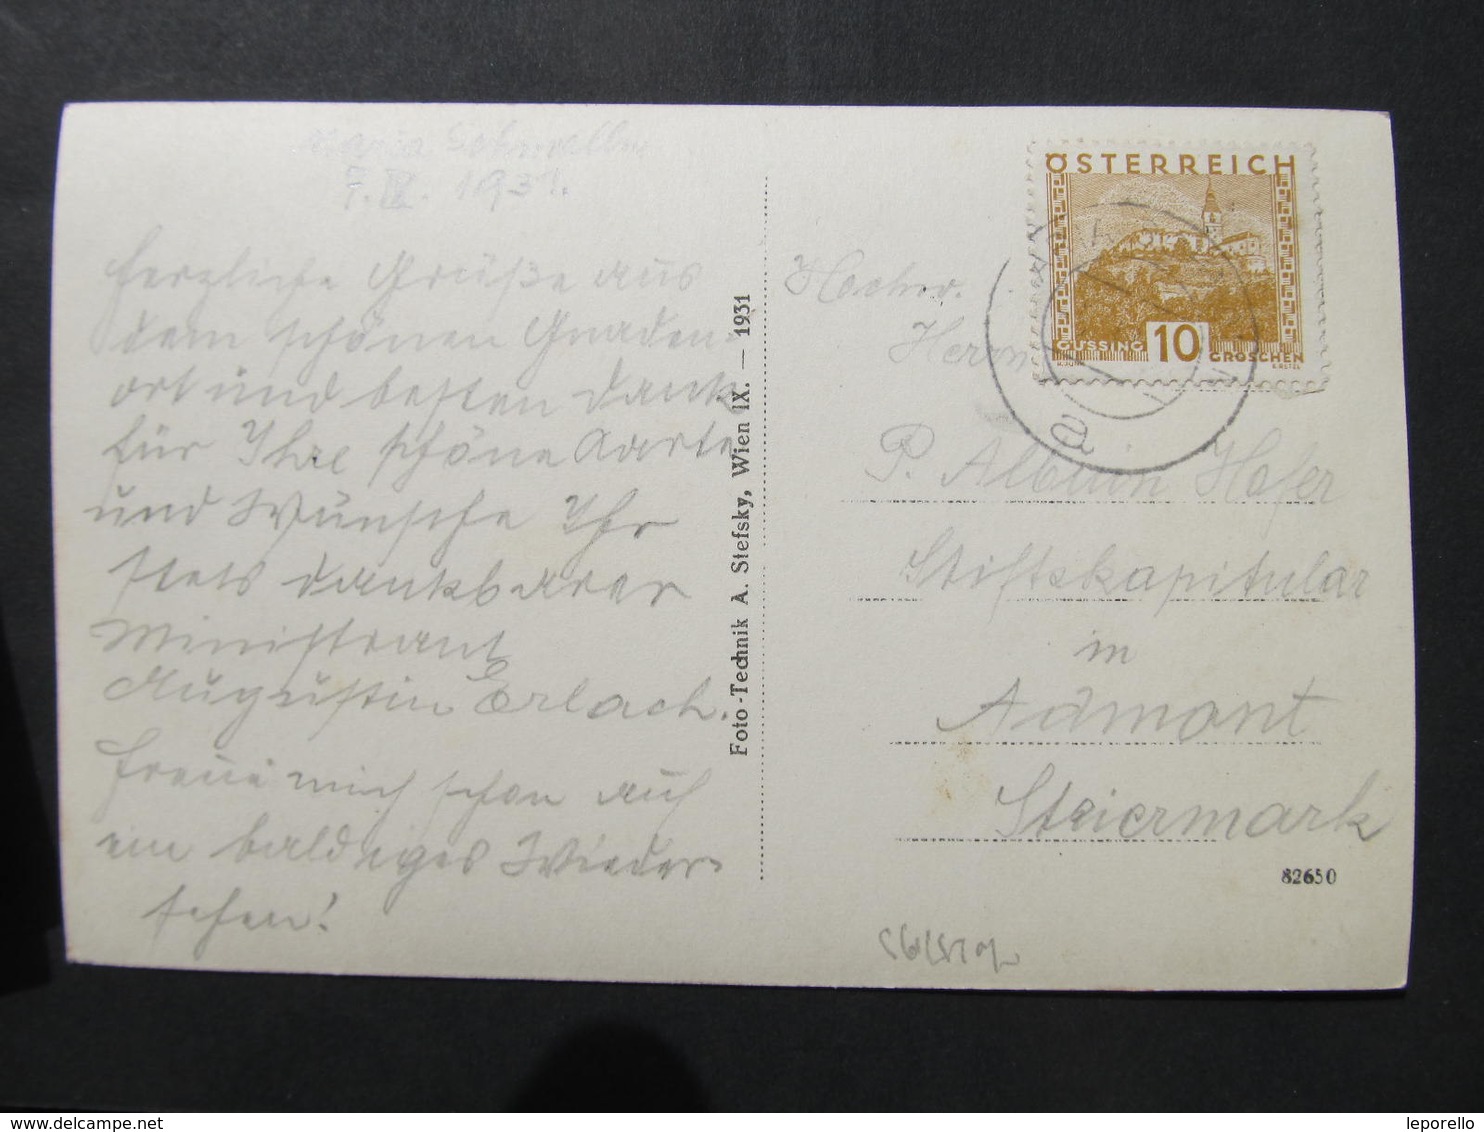 Maria
7. IX. 1931.
Herzliche Grüße aus
dem schönen Gnaden-
ort und besten Dank
für Ihre schöne Karte
und Wünsche Ihr
stets dankbarer
Ministrant
Augustin Erlach.
Freue mich schon auf
ein baldiges Wieder-
sehen!
Foto-Technik A. Stefsky, Wien IX. — 1931
ÖSTERREICH
GÜSSING 10 GROSCHEN
Hochw.
Herrn
P. Albuin Hofer
Stiftskapitular
in
Admont
Steiermark
82650
leporello